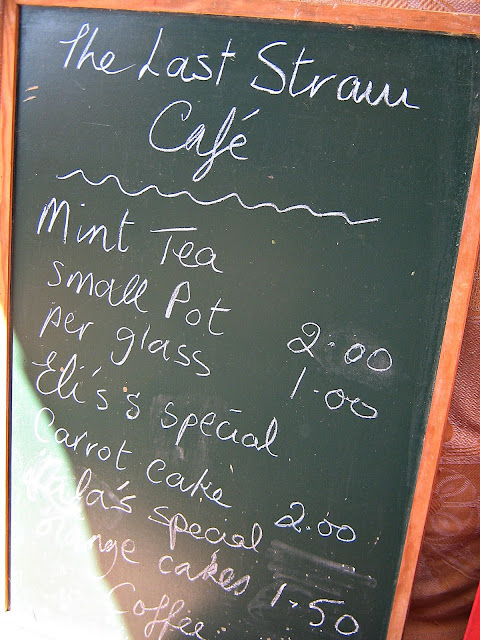 The Last Straw
Café
Mint Tea
small Pot 2.00
per glass 1.00
Eli's s special
Carrot cake 2.00
special
cakes 1.50
Coffee